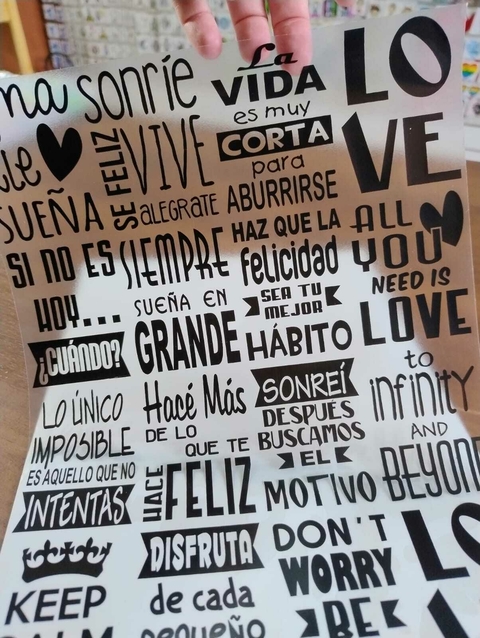 sonríe
SUEÑA
SI NO ES
HOY...
¿CUÁNDO?
LO ÚNICO
IMPOSIBLE
ES AQUELLO QUE NO
INTENTAS
KEEP
SE FELIZ
VIVE
ALEGRATE
SIEMPRE
SUEÑA EN
GRANDE
Hacé Más
DE LO
QUE TE
HACE
FELIZ
DISFRUTA
de cada
pequeño
La
VIDA
es muy
CORTA
para
ABURRIRSE
HAZ QUE LA
felicidad
SEA TU
MEJOR
HÁBITO
SONREÍ
DESPUÉS
BUSCAMOS
EL
MOTIVO
DON'T
WORRY
BE
LO
VE
ALL
YOU
NEED IS
LOVE
to
infinity
AND
BEYOND
LO